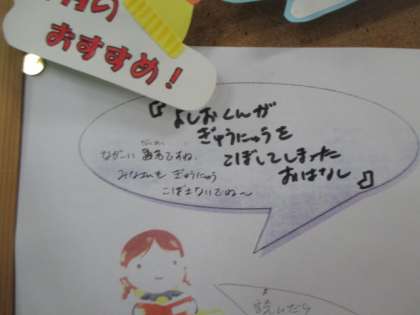 おすすめ！
『よしおくんが
ぎゅうにゅうを
こぼしてしまった
おはなし』
ながーい 題名ですね。
みなさんも ぎゅうにゅう
こぼさないでね〜
読んだら